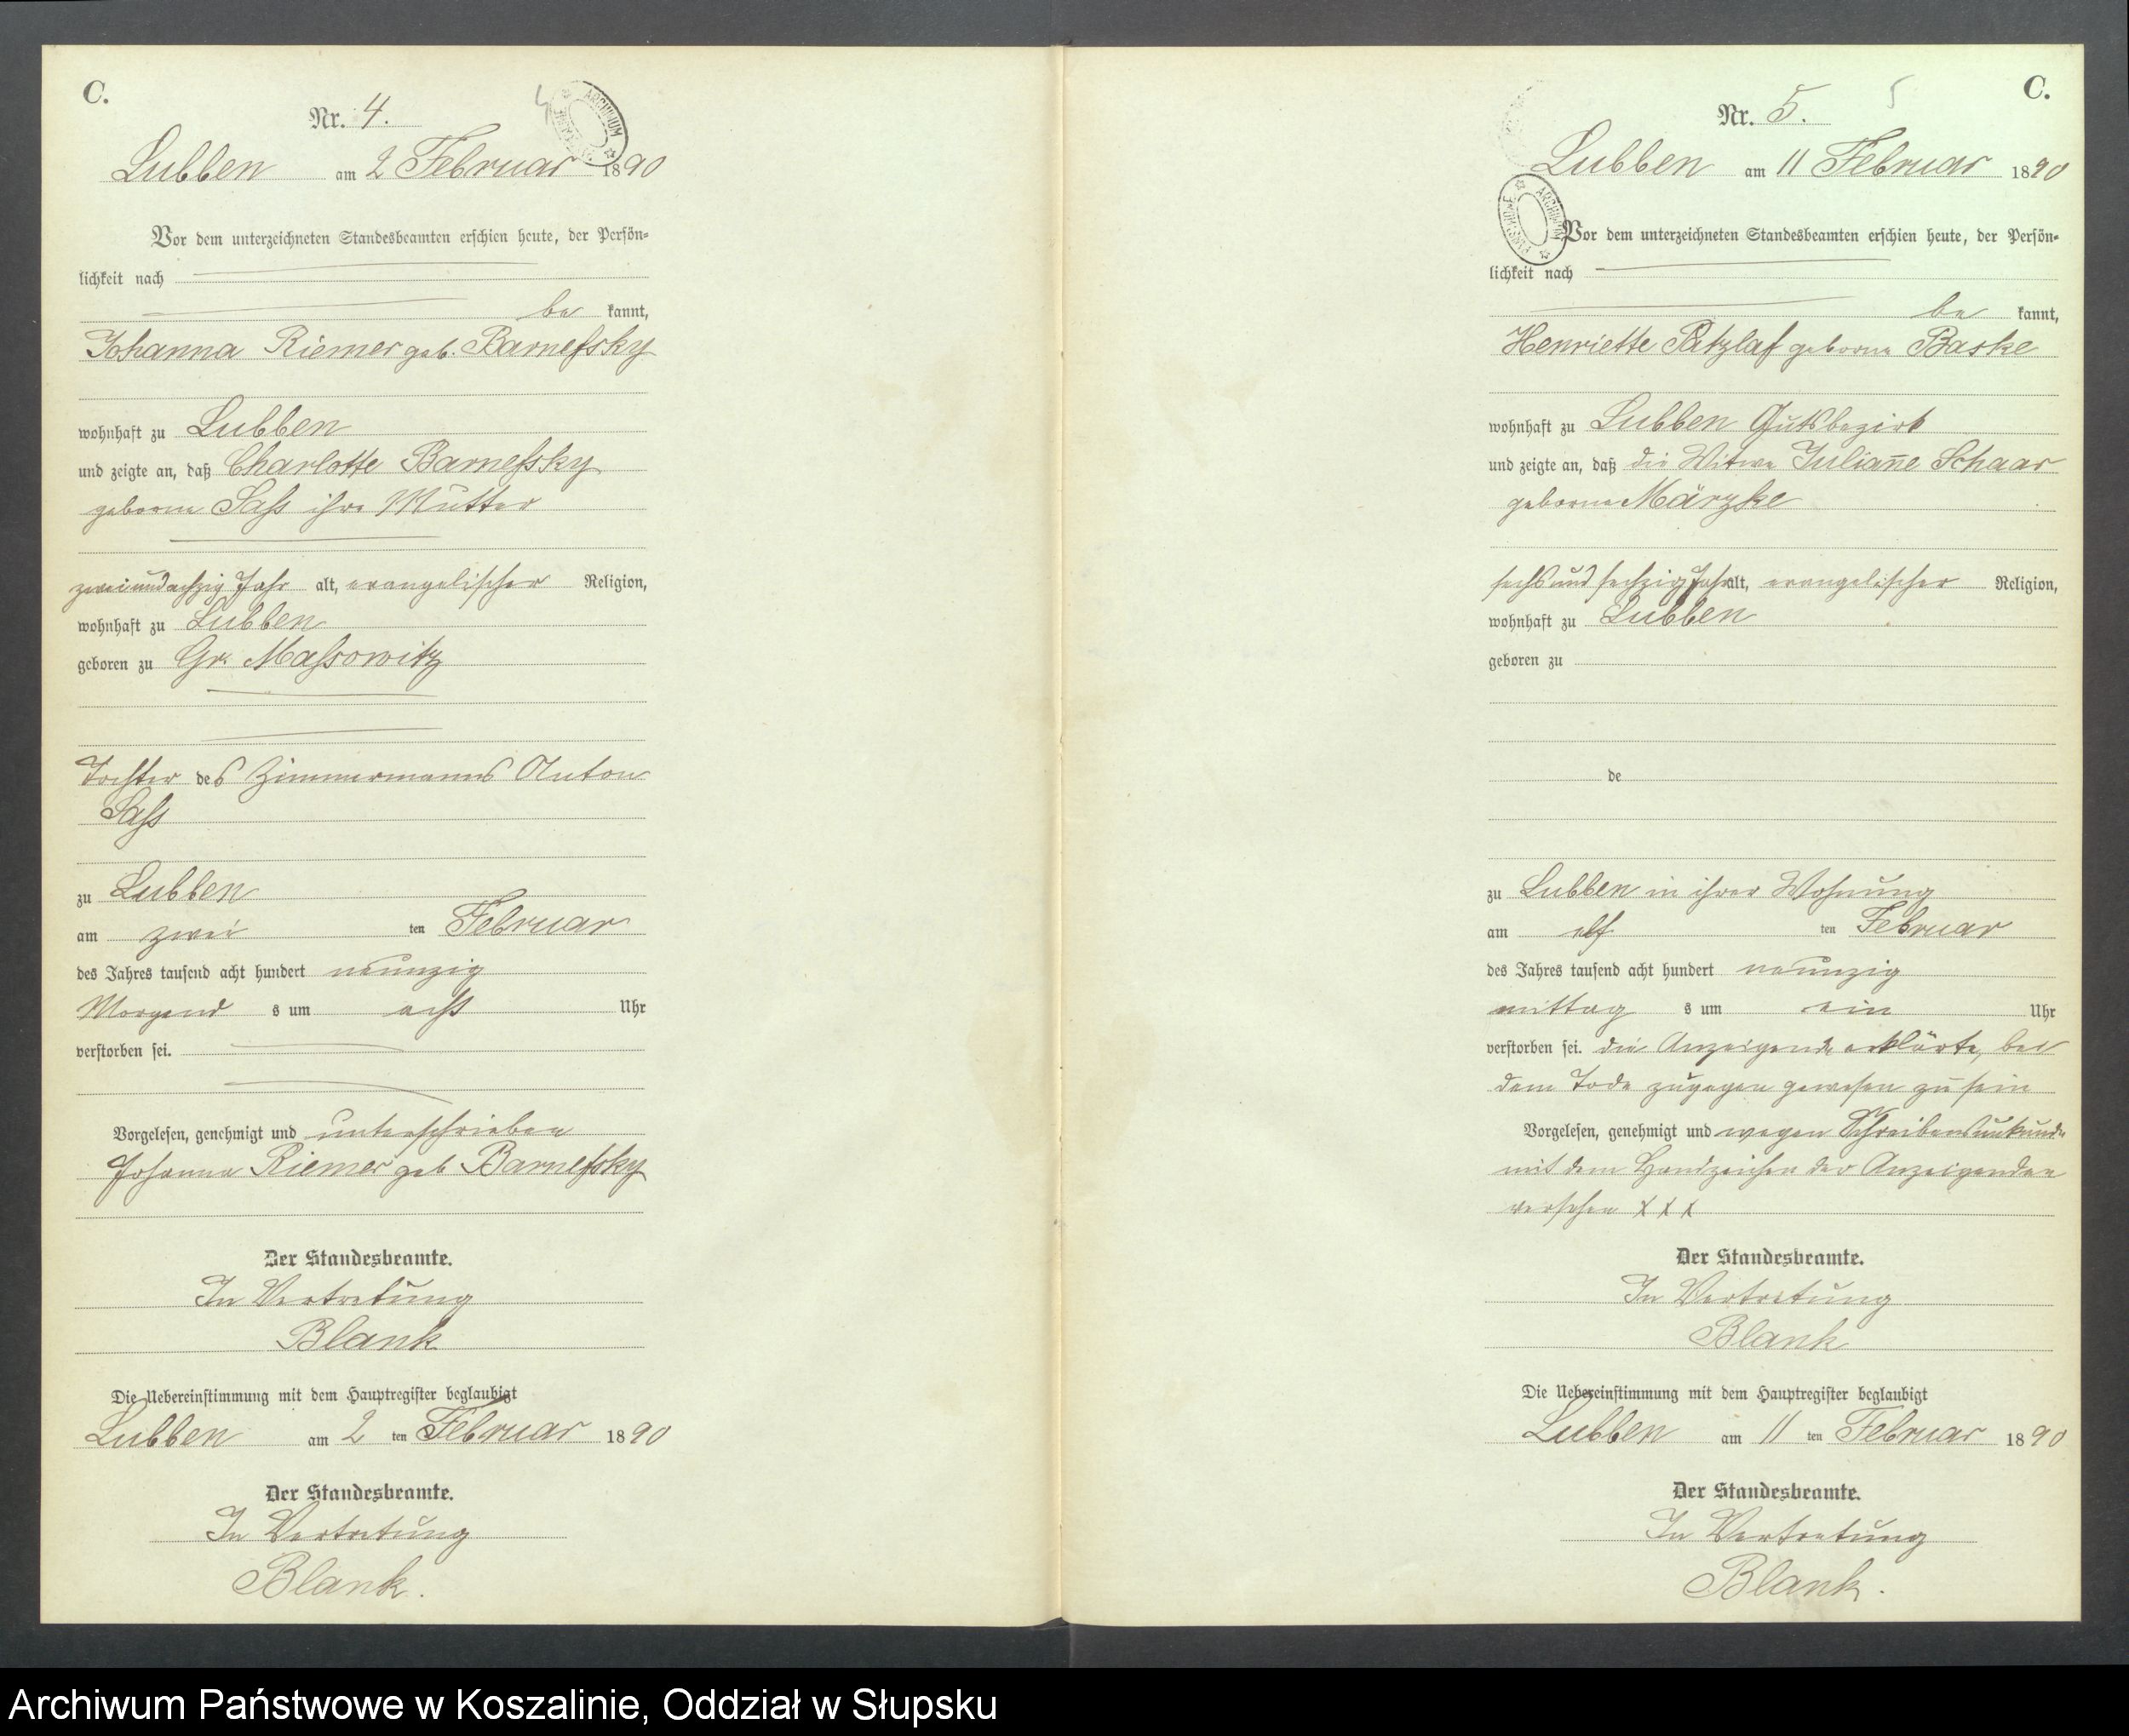 C.
Nr. 4.
4
ARCHIWUM
Lubben am 2 Februar 1890
Vor dem unterzeichneten Standesbeamten erschien heute, der Persön-
lichkeit nach
be kannt,
Johanna Riemer geb. Barnefsky
wohnhaft zu Lubben
und zeigte an, daß Charlotte Barnefsky
geborne Saß ihre Mutter
zweiundachzig Jahr alt, evangelischer Religion,
wohnhaft zu Lubben
geboren zu Gr. Massowitz
Tochter des Zimmermanns Anton
Saß
zu Lubben
am zwei ten Februar
des Jahres tausend acht hundert neunzig
Morgend s um acht Uhr
verstorben sei.
Vorgelesen, genehmigt und unterschrieben
Johanna Riemer geb Barnefsky
Der Standesbeamte.
In Vertretung
Blank
Die Uebereinstimmung mit dem Hauptregister beglaubigt
Lubben am 2 ten Februar 1890
Der Standesbeamte.
In Vertretung
Blank.
C.
Nr. 5.
5
Lubben am 11 Februar 1890
ARCHIWUM PAŃSTWOWE
Vor dem unterzeichneten Standesbeamten erschien heute, der Persön-
lichkeit nach
be kannt,
Henriette Patzlaf geborne Baske
wohnhaft zu Lubben Gutsbezirk
und zeigte an, daß die Witwe Julian̄e Schaar
geborne Märzke
sechs und sechzig Jahr alt, evangelischer Religion,
wohnhaft zu Lubben
geboren zu
de
zu Lubben in ihrer Wohnung
am elf ten Februar
des Jahres tausend acht hundert neunzig
mittag s um ein Uhr
verstorben sei. die Anzeigende erklärte, bei
dem Tode zugegen gewesen zu sein
Vorgelesen, genehmigt und wegen Schreibensunkunde
mit dem Handzeichen der Anzeigenden
versehen x x x
Der Standesbeamte.
In Vertretung
Blank
Die Uebereinstimmung mit dem Hauptregister beglaubigt
Lubben am 11 ten Februar 1890
Der Standesbeamte.
In Vertretung
Blank.
Archiwum Państwowe w Koszalinie, Oddział w Słupsku